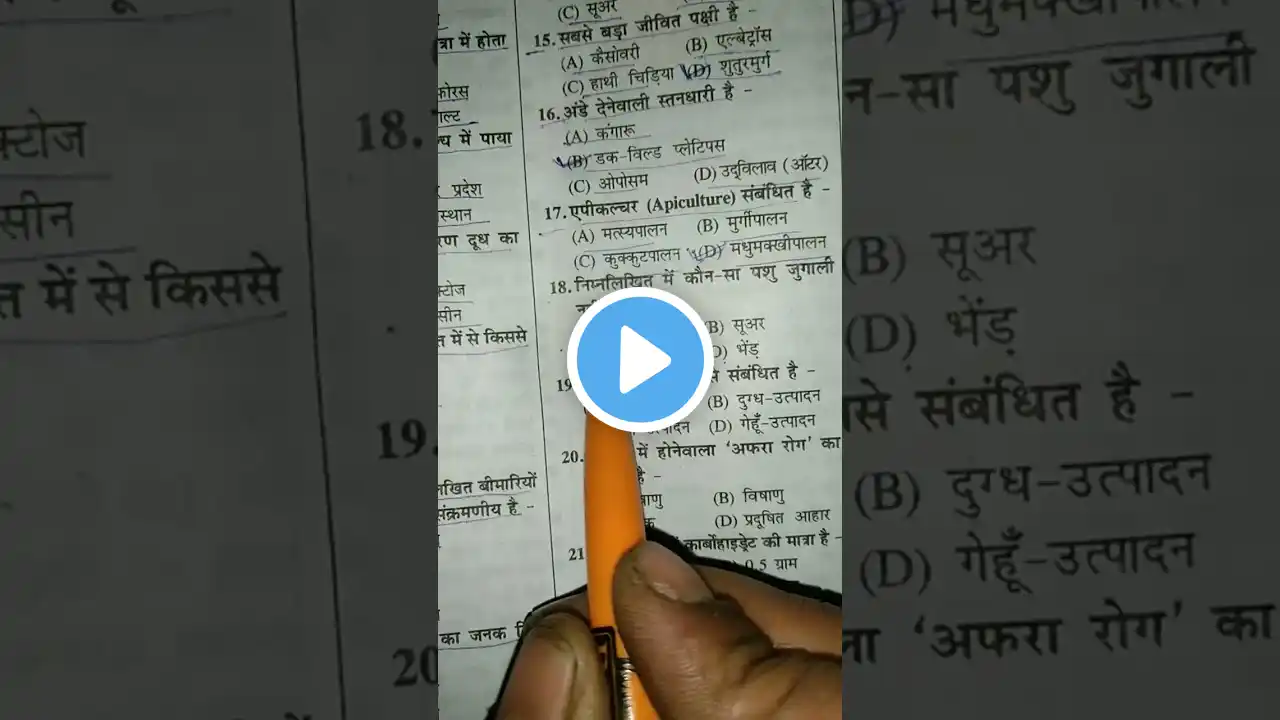 त्रा में होता
फोरस
ाल्ट
्य में पाया
प्रदेश
स्थान
रण दूध का
क्टोज
सीन
त में से किससे
नखित बीमारियों
संक्रमणीय है -
का जनक
(C) सूअर
15. सबसे बड़ा जीवित पक्षी है -
(A) कैसोवरी (B) एल्बेट्रॉस
(C) हाथी चिड़िया (D) शुतुरमुर्ग
16. अंडे देनेवाली स्तनधारी है -
(A) कंगारू
(B) डक-विल्ड प्लेटिपस
(C) ओपोसम (D) उद्विलाव (ऑटर)
17. एपीकल्चर (Apiculture) संबंधित है -
(A) मत्स्यपालन (B) मुर्गीपालन
(C) कुक्कुटपालन (D) मधुमक्खीपालन
18. निम्नलिखित में कौन-सा पशु जुगाली
B) सूअर
D) भेंड़
19 से संबंधित है -
(B) दुग्ध-उत्पादन
त्पादन (D) गेहूँ-उत्पादन
20. में होनेवाला 'अफरा रोग' का
है -
षाणु (B) विषाणु
(D) प्रदूषित आहार
21 कार्बोहाइड्रेट की मात्रा है -
0.5 ग्राम
क्टोज
सीन
त में से किससे
18.
19.
20
(D) मधुमक्खीपालन
न-सा पशु जुगाली
(B) सूअर
(D) भेंड़
से संबंधित है -
(B) दुग्ध-उत्पादन
(D) गेहूँ-उत्पादन
ला 'अफरा रोग' का